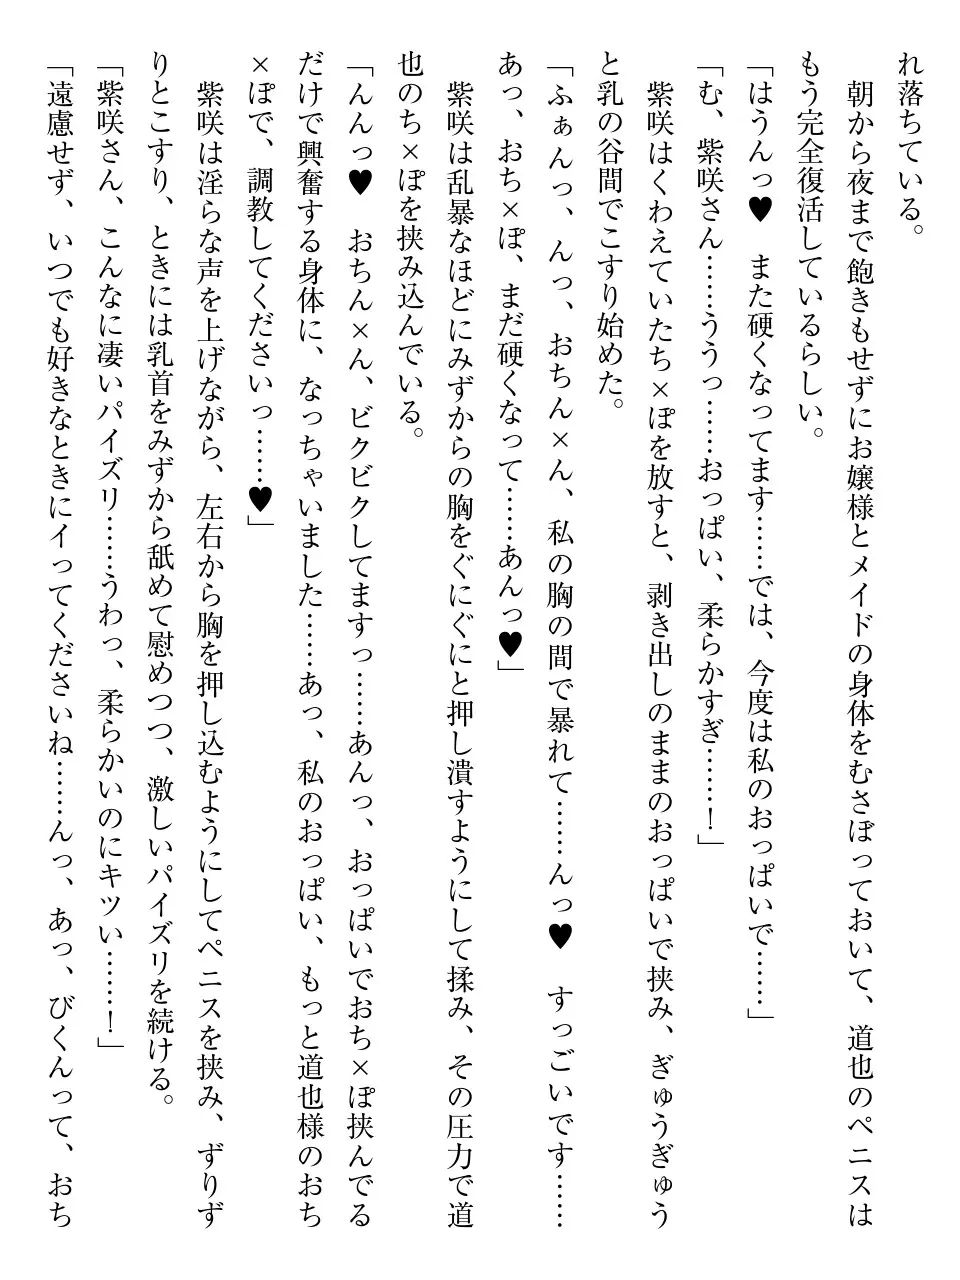 れ落ちている。
　朝から夜まで飽きもせずにお嬢様とメイドの身体をむさぼっておいて、道也のペニスは
もう完全復活しているらしい。
「はうんっ♥　また硬くなってます……では、今度は私のおっぱいで……」
「む、紫咲さん……ううっ……おっぱい、柔らかすぎ……！」
　紫咲はくわえていたち×ぽを放すと、剥き出しのままのおっぱいで挟み、ぎゅうぎゅう
と乳の谷間でこすり始めた。
「ふぁんっ、んっ、おちん×ん、私の胸の間で暴れて……んっ♥　すっごいです……
あっ、おち×ぽ、まだ硬くなって……あんっ♥」
　紫咲は乱暴なほどにみずからの胸をぐにぐにと押し潰すようにして揉み、その圧力で道
也のち×ぽを挟み込んでいる。
「んんっ♥　おちん×ん、ビクビクしてますっ……あんっ、おっぱいでおち×ぽ挟んでる
だけで興奮する身体に、なっちゃいました……あっ、私のおっぱい、もっと道也様のおち
×ぽで、調教してくださいっ……♥」
　紫咲は淫らな声を上げながら、左右から胸を押し込むようにしてペニスを挟み、ずりず
りとこすり、ときには乳首をみずから舐めて慰めつつ、激しいパイズリを続ける。
「紫咲さん、こんなに凄いパイズリ……うわっ、柔らかいのにキツい……！」
「遠慮せず、いつでも好きなときにイってくださいね……んっ、あっ、びくんって、おち